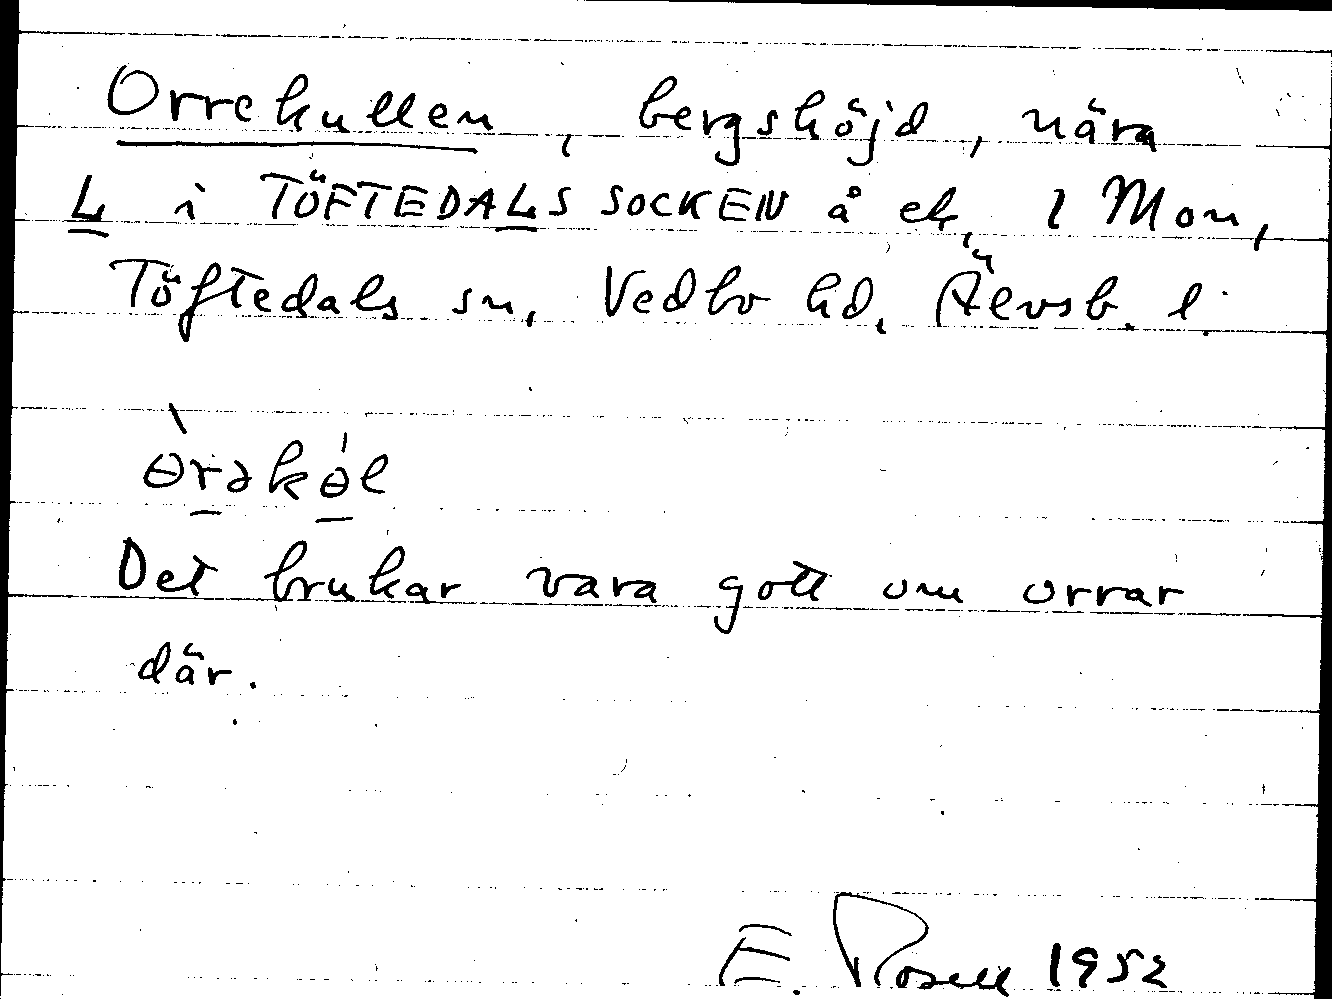 Orrekullen, bergshöjd, nära
L i TÖFTEDALS SOCKEN å ek, 1 Mon,
Töftedals sn, Vedbo hd, Älvsb. l.
ɵ̀rəkɵ́l
Det brukar vara gott om orrar
där.
E. Rosell 1952